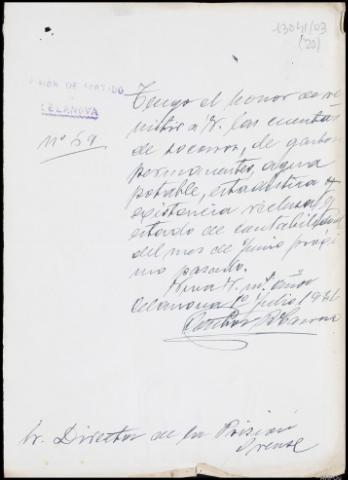 13041/03
(20)
PRISION DE PARTIDO
CELANOVA
Nº 59
Tengo el honor de re
mitir a V. las cuentas
de socorros, de gastos
permanentes, agua
potable, estadistica y
existencia reclusa y
estado de contabilidad
del mes de Junio proxi
mo pasado.
Viva V. m.s años
Celanova 1º Julio 1936
Sr. Director de la Prision
Orense